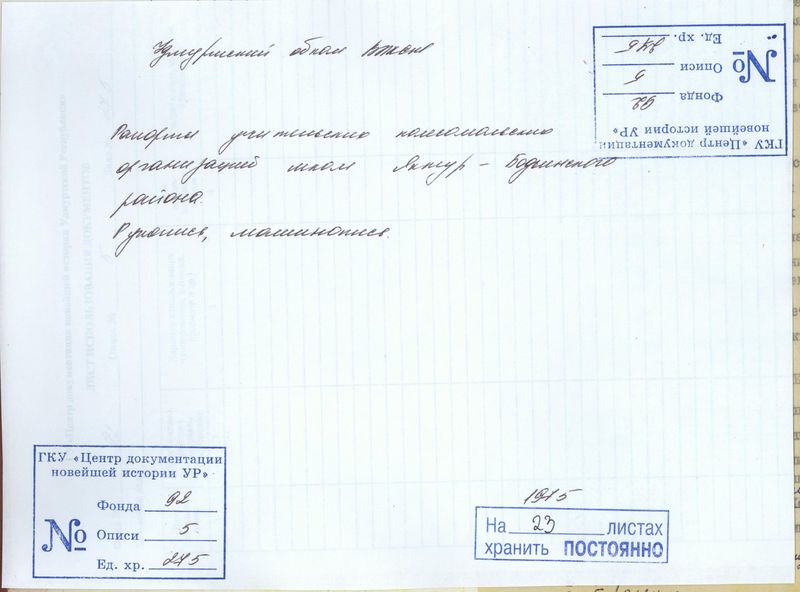 Удмуртский обком ВЛКСМ
Рапорты учительских комсомольских
организаций школ Якшур-Бодьинского
района.
Рукопись, машинопись.
ГКУ «Центр документации
новейшей истории УР»
№
Фонда 92
Описи 5
Ед. хр.
ГКУ «Центр документации
новейшей истории УР»
№
Фонда 92
Описи 5
Ед. хр. 245
На 23 листах
хранить ПОСТОЯННО